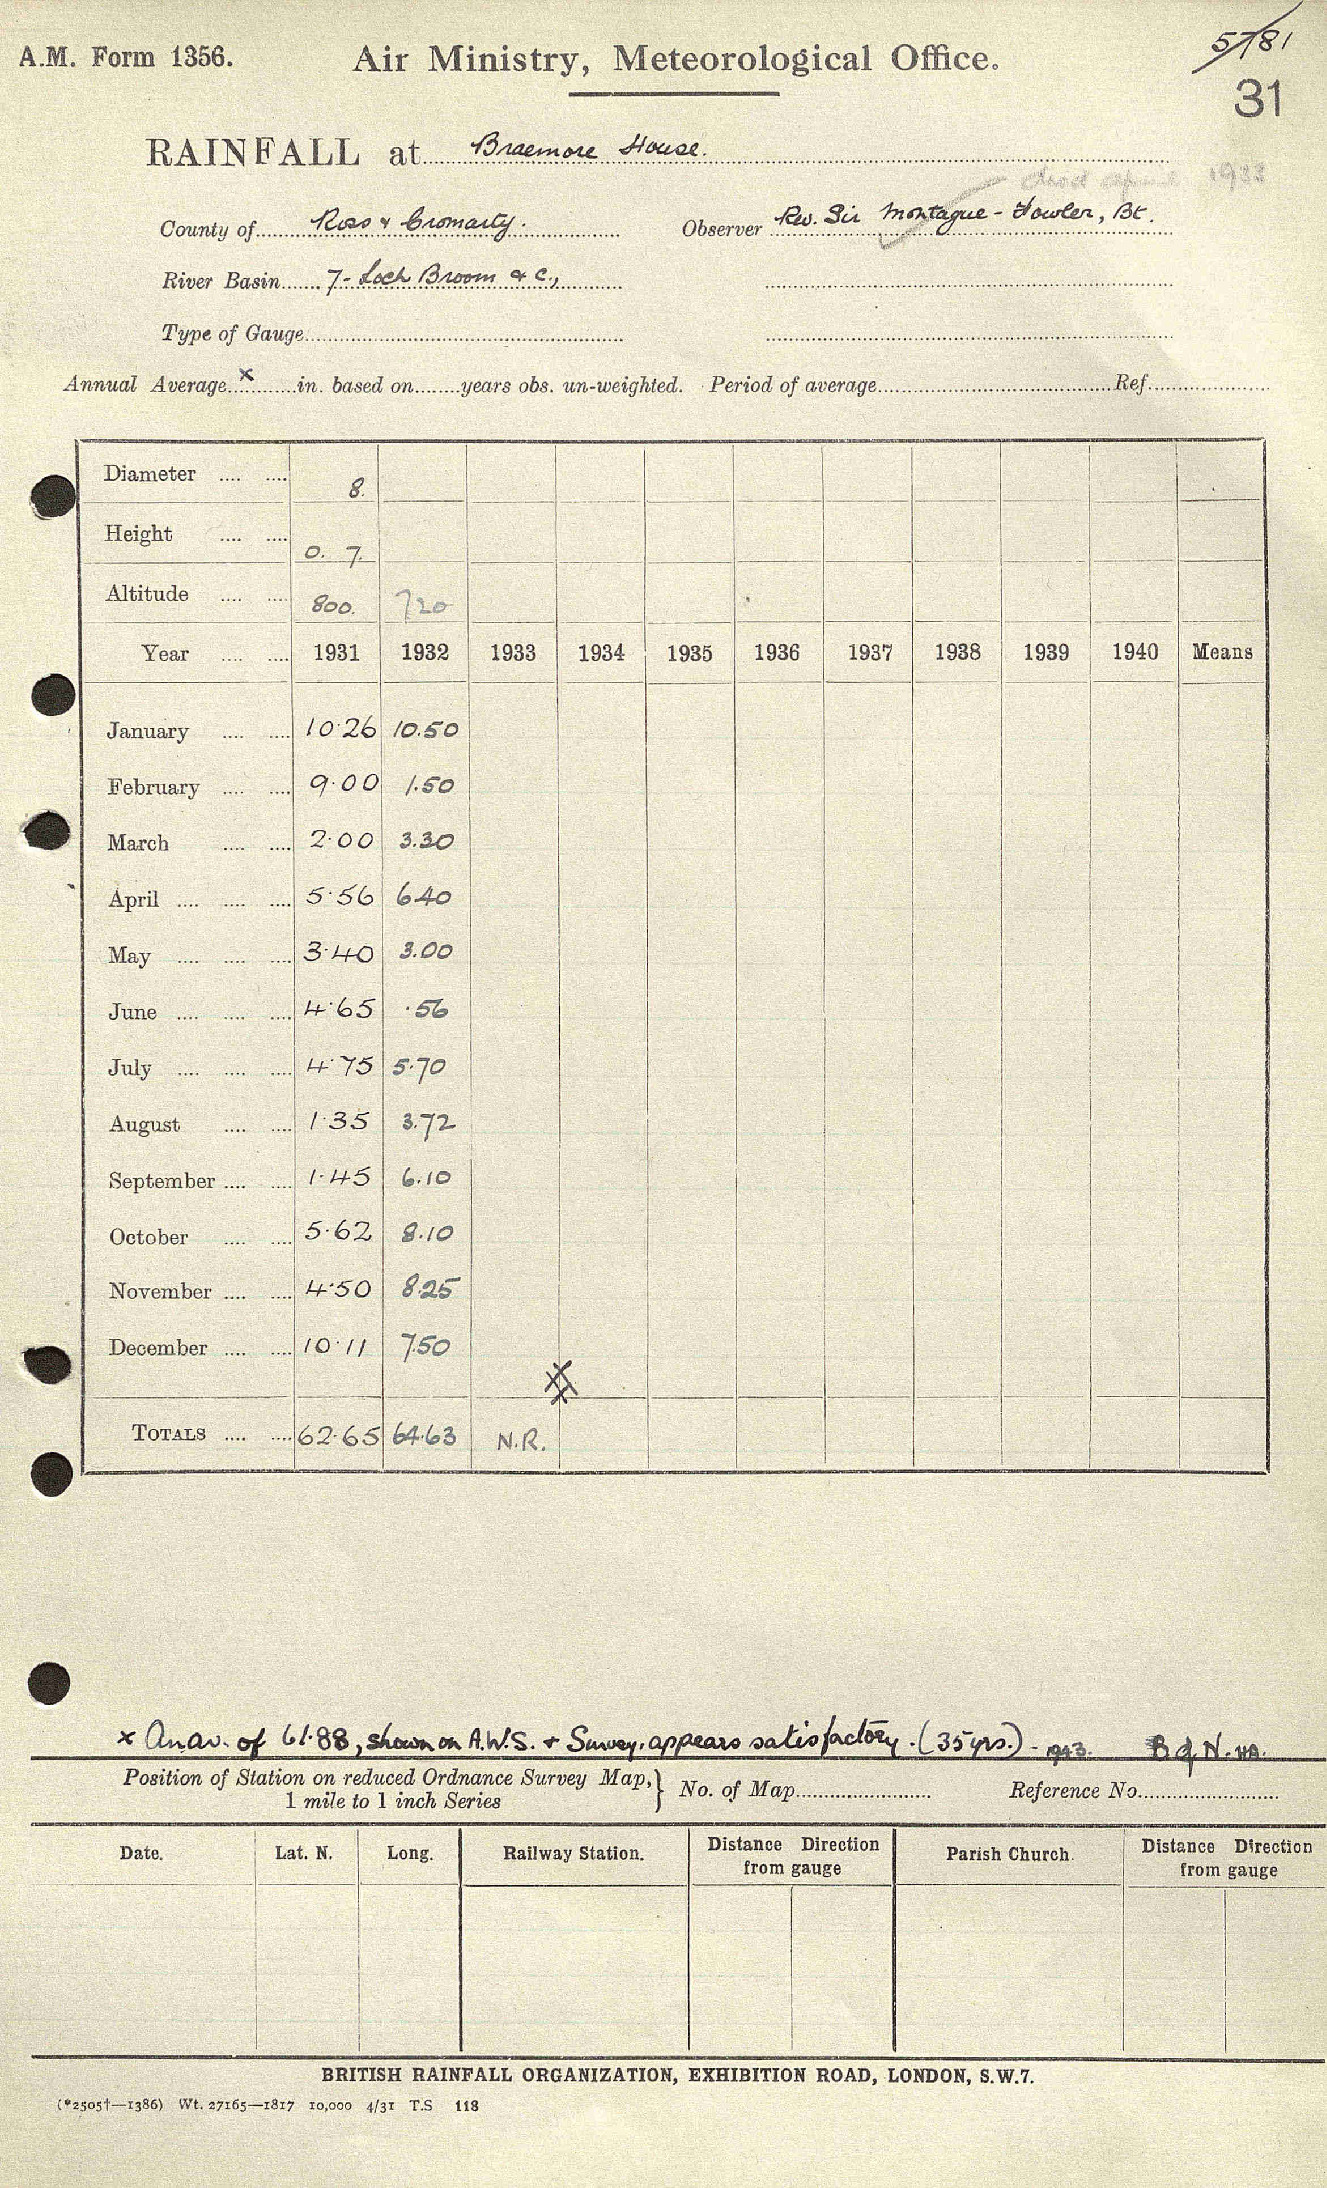 A.M. Form 1356. Air Ministry, Meteorological Office. 5781
31
RAINFALL at Braemore House.
died april 1933
County of Ross & Cromarty. Observer Rev. Sir Montague-Fowler, Bt.
River Basin 7- Loch Broom & c.,
Type of Gauge
Annual Average x in. based on years obs. un-weighted. Period of average Ref.
Diameter 8.
Height 0. 7.
Altitude 800. 720
Year 1931 1932 1933 1934 1935 1936 1937 1938 1939 1940 Means
January 10.26 10.50
February 9.00 1.50
March 2.00 3.30
April 5.56 6.40
May 3.40 3.00
June 4.65 .56
July 4.75 5.70
August 1.35 3.72
September 1.45 6.10
October 5.62 8.10
November 4.50 8.25
December 10.11 7.50
TOTALS 62.65 64.63 N.R.
x An.av. of 61.88, shown on A.W.S. & Survey, appears satisfactory. (35yrs.) - 1943. B of N. HA.
Position of Station on reduced Ordnance Survey Map, } No. of Map Reference No.
1 mile to 1 inch Series
Date. Lat. N. Long. Railway Station. Distance Direction from gauge Parish Church. Distance Direction from gauge
BRITISH RAINFALL ORGANIZATION, EXHIBITION ROAD, LONDON, S.W.7.
(*2505†—1386) Wt. 27165—1817 10,000 4/31 T.S 118